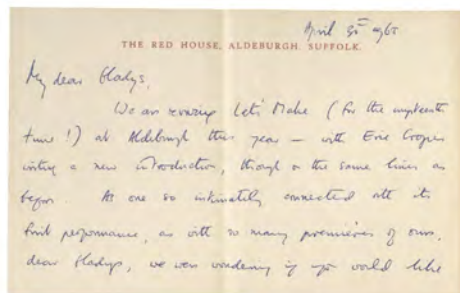 April 30th 1965
THE RED HOUSE, ALDEBURGH. SUFFOLK.
My dear Gladys,
We are reviving Let's Make (for the umpteenth
time!) at Aldeburgh this year — with Eric Crozier
writing a new introduction, though on the same lines as
before. As one so intimately connected with its
first performance, as with so many premières of ours,
dear Gladys, we were wondering if you would like